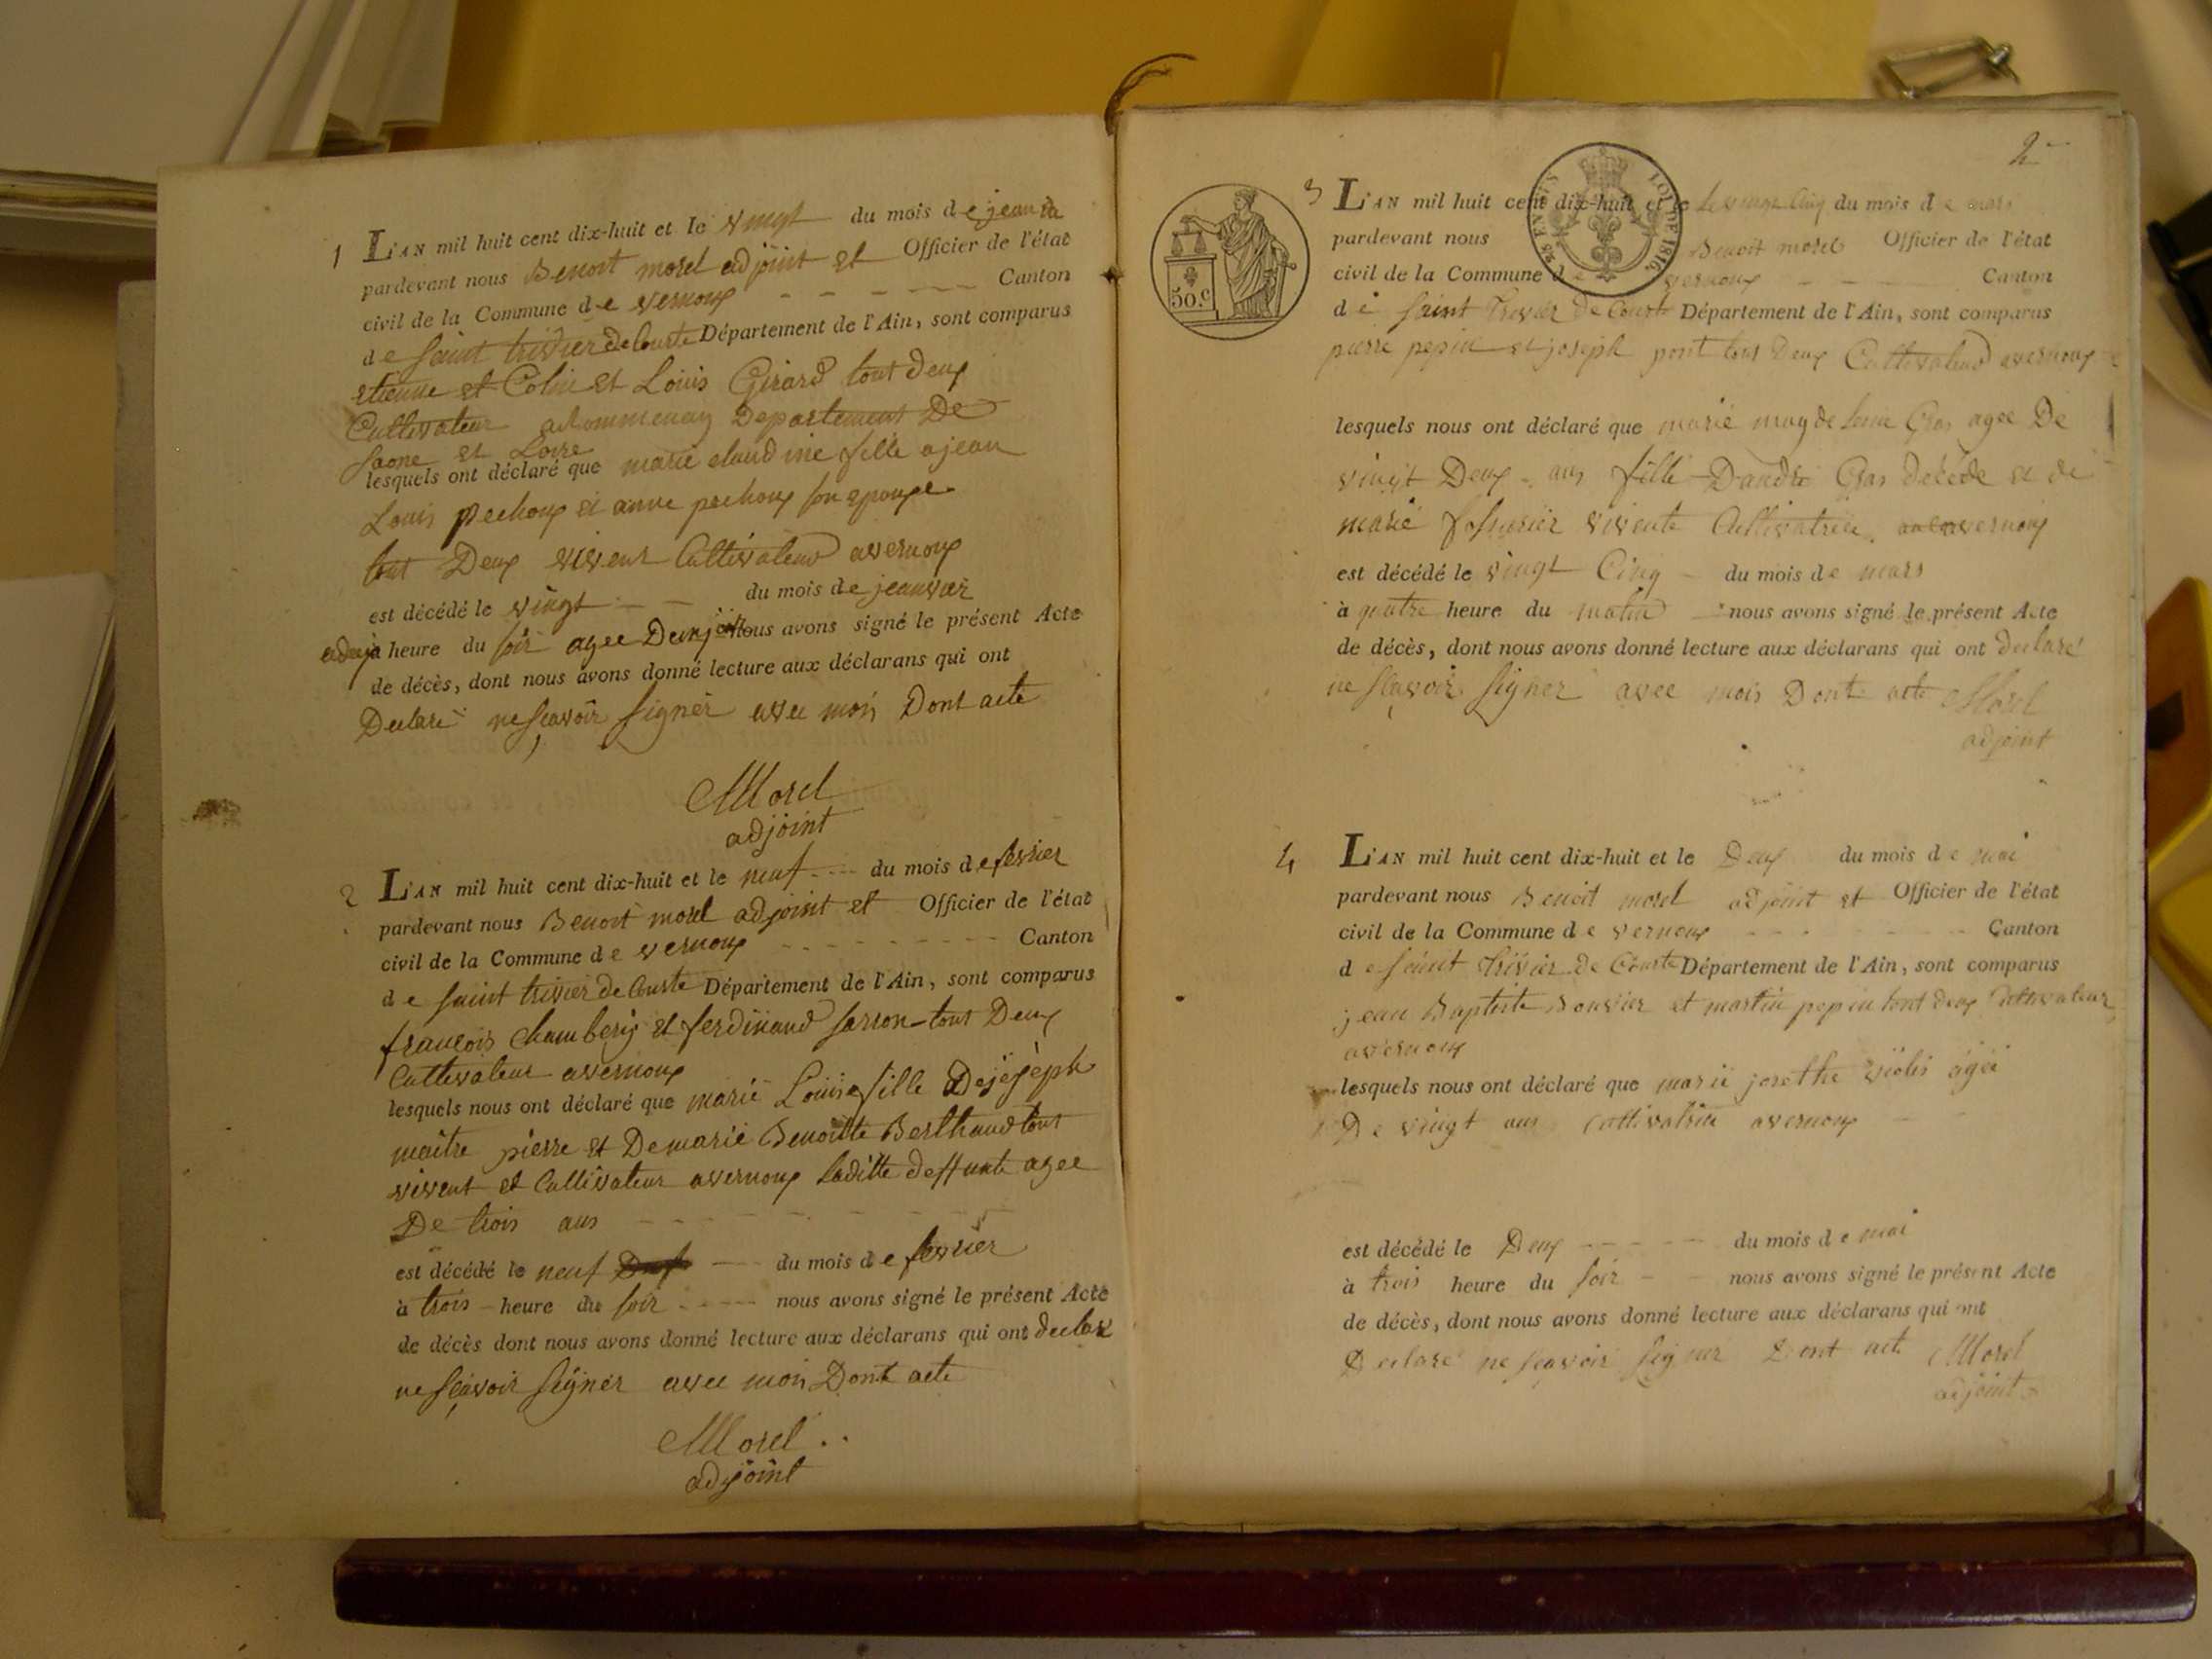 1 L'AN mil huit cent dix-huit et le vingt du mois de jeanvie
pardevant nous Benoit morel adjoint et Officier de l'état
civil de la Commune de vernoux Canton
de saint trivier de Courte Département de l'Ain, sont comparus
etienne et Colin et Louis Girard tout deux
Cultivateur Departement De
Saone et Loire
lesquels ont déclaré que marie claudine fille a jean
Louis pechoux et anne pechoux son epouxe
tout Deux vivent Cultivateur avernoux
est décédé le vingt du mois de jeanvier
adeux à heure du soir agee Deux nous avons signé le présent Acte
de décès, dont nous avons donné lecture aux déclarans qui ont
Declaré ne sçavoir signer avec moi Dont acte
Morel
adjoint
2 L'AN mil huit cent dix-huit et le neuf du mois de fevrier
pardevant nous Benoit morel adjoint et Officier de l'état
civil de la Commune de vernoux Canton
de saint trivier de Courte Département de l'Ain, sont comparus
françois Chamberÿ et ferdinand sarron tout Deux
Cultivateur avernoux
lesquels nous ont déclaré que marie Louise fille De jojeph
maitre pierre et De marie Benoitte Berthaud tout
vivent et Cultivateur avernoux laditte deffunte agee
De trois ans
est décédé le neuf du mois de fevrier
à trois heure du soir nous avons signé le présent Acte
de décès dont nous avons donné lecture aux déclarans qui ont declare
ne sçavoir signer avec moi Dont acte
Morel
adjoint
2
50.c
LOI DE 1816.
3 L'AN mil huit cent dix-huit et le le vingt Cinq du mois de mars
pardevant nous Benoit morel Officier de l'état
civil de la Commune de vernoux Canton
de saint Trivier de Courte Département de l'Ain, sont comparus
pierre pepin et joseph pont tout Deux Cultivateur avernoux
lesquels nous ont déclaré que marie magdeleine Gras agee De
vingt Deux ans fille Dandré Gras décédé et de
marie vivente Cultivatrice avernoux
est décédé le vingt Cinq du mois de mars
à quatre heure du matin nous avons signé le présent Acte
de décès, dont nous avons donné lecture aux déclarans qui ont declaré
ne sçavoir signer avec mois Dont acte Morel
adjoint
4 L'AN mil huit cent dix-huit et le Deux du mois de mai
pardevant nous Benoit morel adjoint et Officier de l'état
civil de la Commune de vernoux Canton
de saint Trivier de Courte Département de l'Ain, sont comparus
jean Baptiste Bouvier et martin pepin tout deux Cultivateur
avernoux
lesquels nous ont déclaré que marie josethe agee
De vingt ans cultivatrice avernoux
est décédé le Deux du mois de mai
à trois heure du soir nous avons signé le présent Acte
de décès, dont nous avons donné lecture aux déclarans qui ont
Declaré ne sçavoir signer Dont acte Morel
adjoint